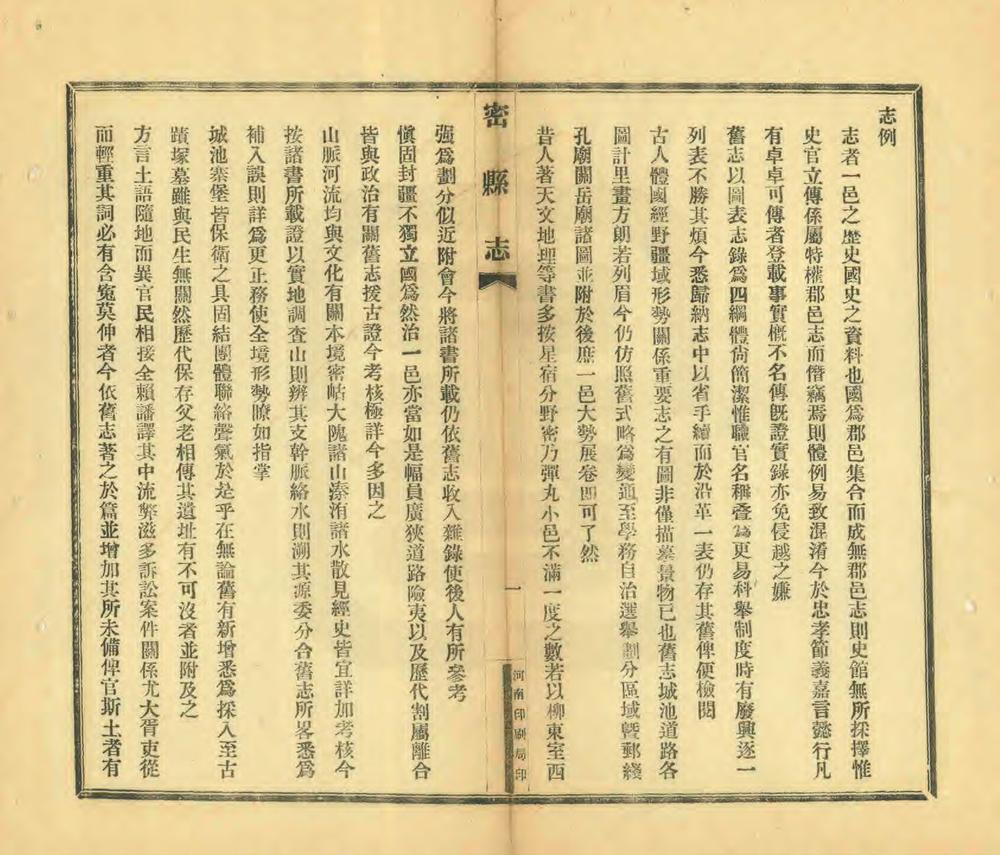 志例
志者一邑之歷史國史之資料也國爲郡邑集合而成無郡邑志則史館無所採擇惟
史官立傳係屬特權郡邑志而僭竊焉則體例易致混淆今於忠孝節義嘉言懿行凡
有卓卓可傳者登載事實概不名傳既證實錄亦免侵越之嫌
舊志以圖表志錄爲四綱體尙簡潔惟職官名稱疊爲更易科舉制度時有廢興逐一
列表不勝其煩今悉歸納志中以省手續而於沿革一表仍存其舊俾便檢閱
古人體國經野疆域形勢關係重要志之有圖非僅描摹景物已也舊志城池道路各
圖計里畫方朗若列眉今仍仿照舊式略爲變通至學務自治選舉劃分區域曁郵綫
孔廟關岳廟諸圖並附於後庶一邑大勢展卷即可了然
昔人著天文地理等書多按星宿分野密乃彈丸小邑不滿一度之數若以柳東室西
密縣志
一
河南印刷局印
强爲劃分似近附會今將諸書所載仍依舊志收入雜錄使後人有所參考
愼固封疆不獨立國爲然治一邑亦當如是幅員廣狹道路險夷以及歷代割屬離合
皆與政治有關舊志援古證今考核極詳今多因之
山脈河流均與文化有關本境密岵大隗諸山溱洧諸水散見經史皆宜詳加考核今
按諸書所載證以實地調查山則辨其支幹脈絡水則溯其源委分合舊志所畧悉爲
補入誤則詳爲更正務使全境形勢瞭如指掌
城池寨堡皆保衛之具固結團體聯絡聲氣於是乎在無論舊有新增悉爲採入至古
蹟塚墓雖與民生無關然歷代保存父老相傳其遺址有不可沒者並附及之
方言土語隨地而異官民相接全賴譒譯其中流弊滋多訴訟案件關係尤大胥吏從
而輕重其詞必有含寃莫伸者今依舊志著之於篇並增加其所未備俾官斯土者有